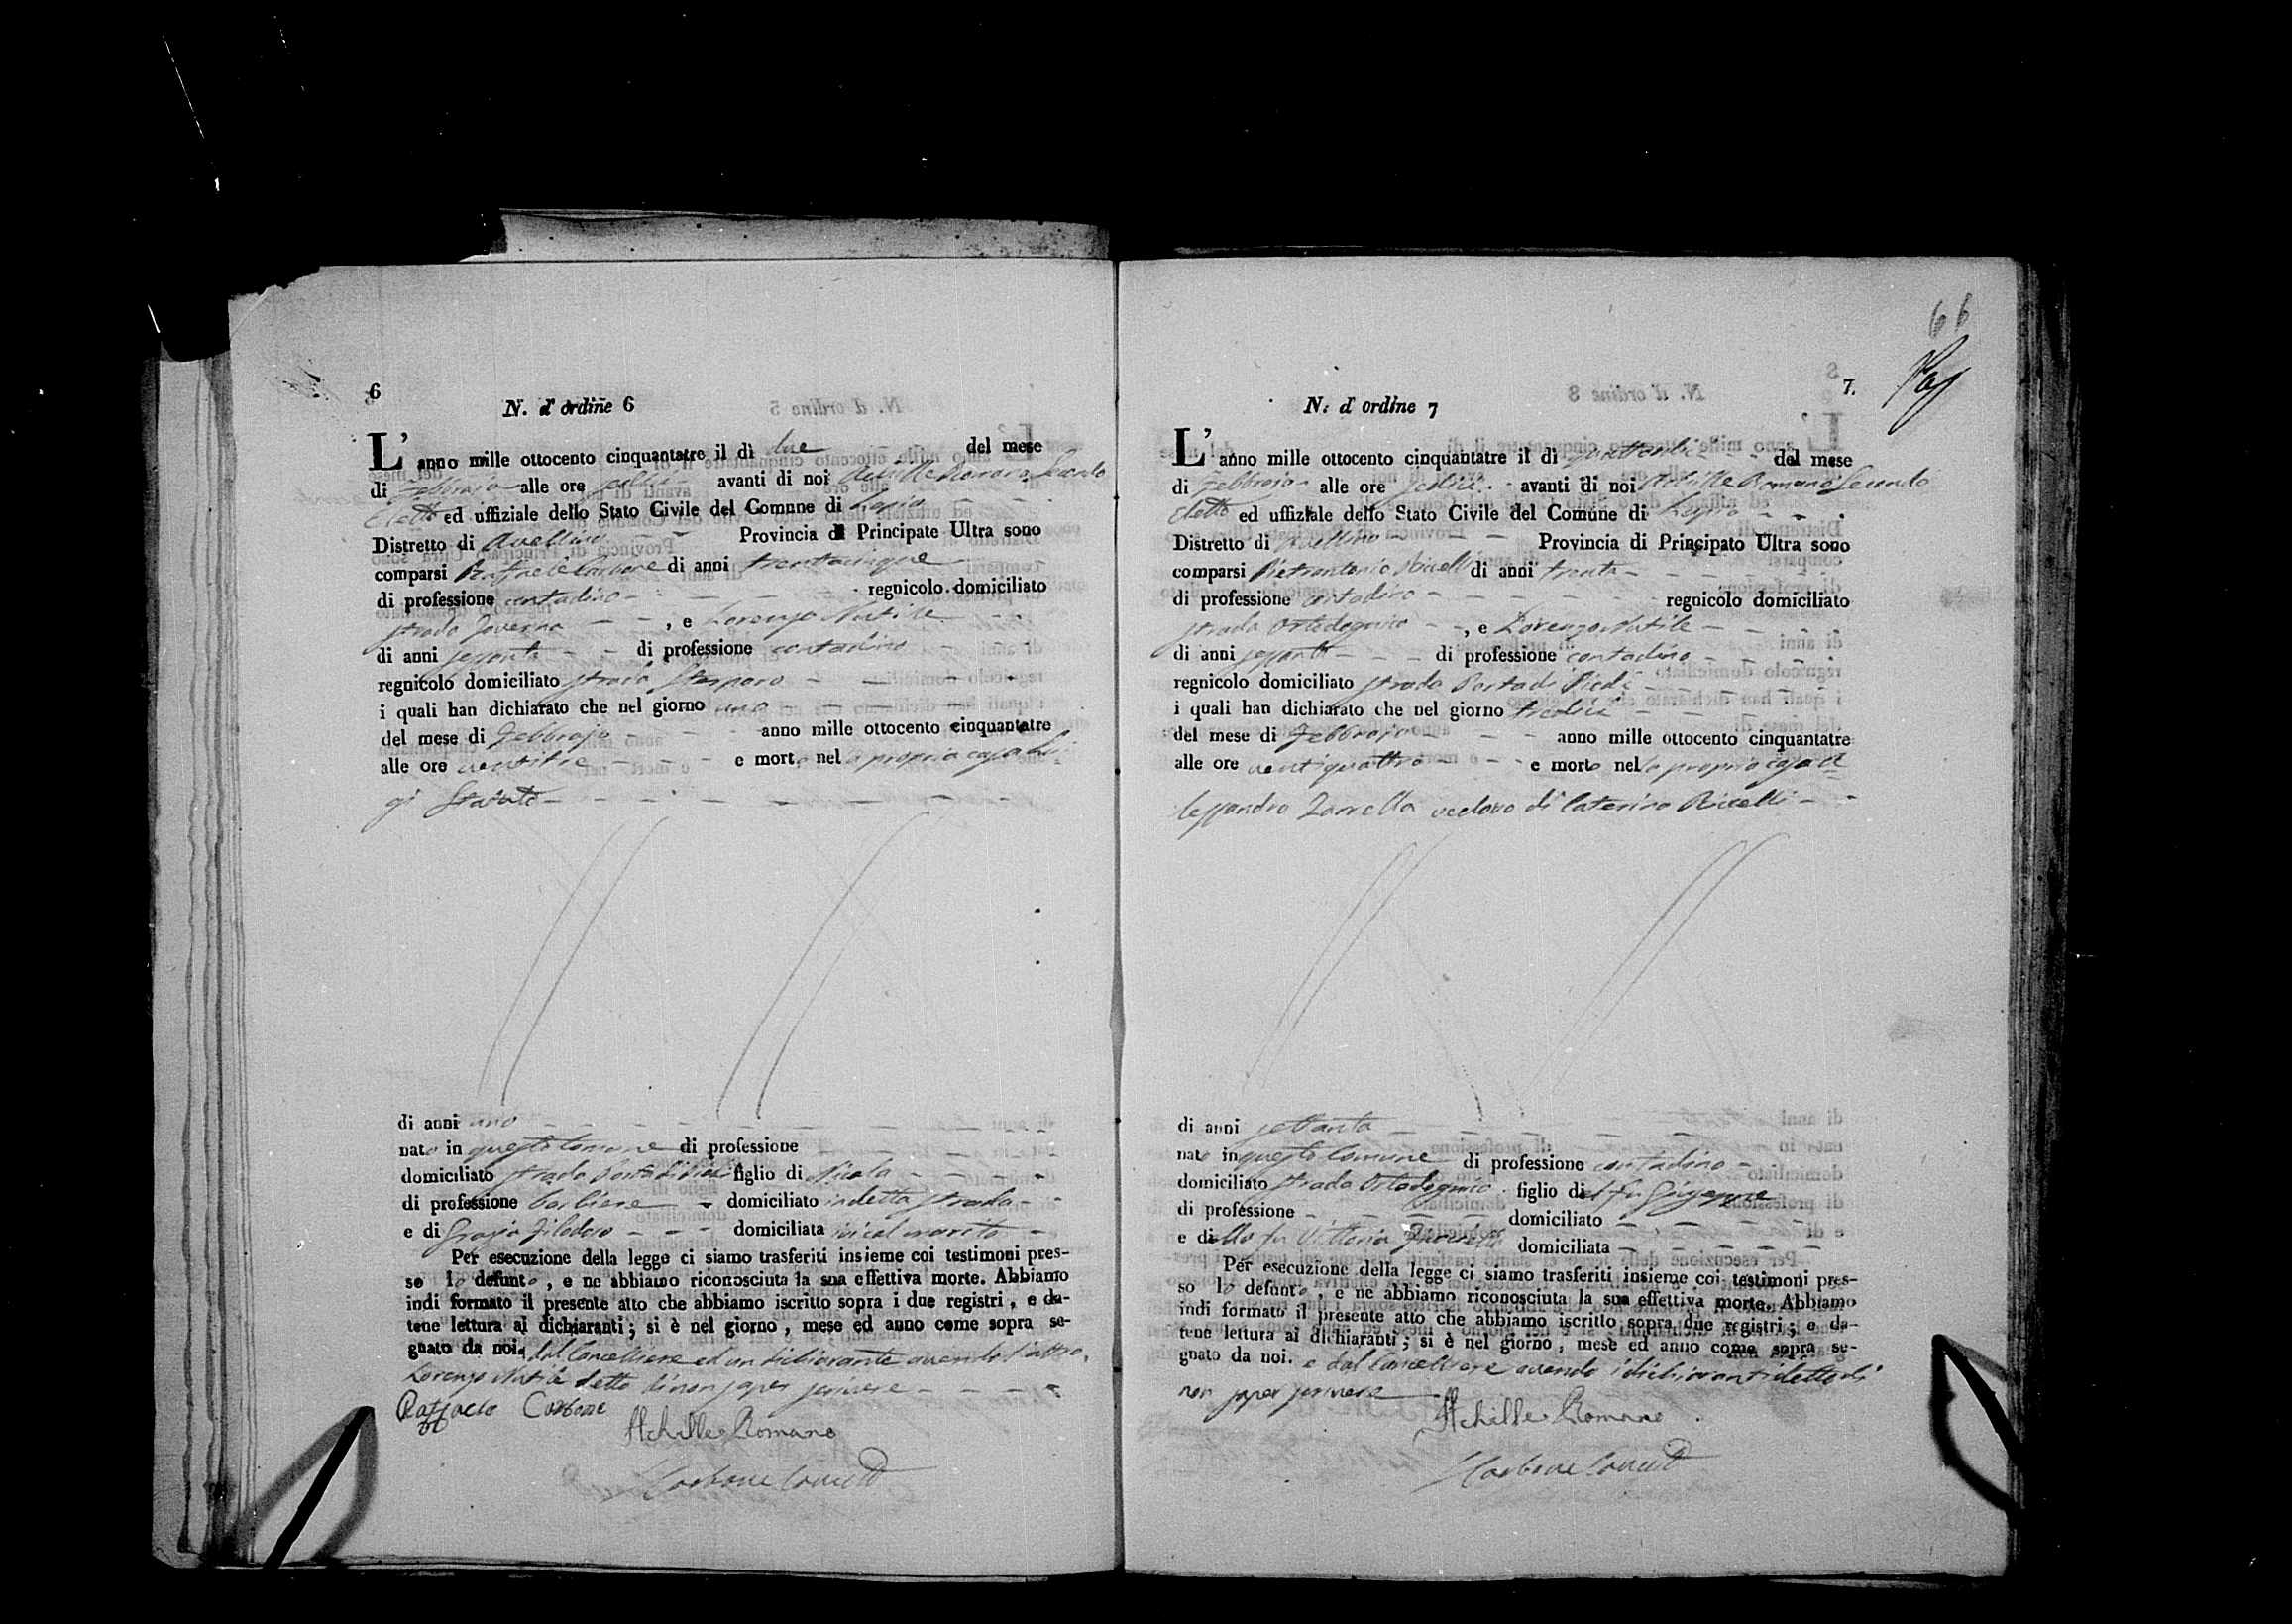 6
N. d' ordine 6
L' anno mille ottocento cinquantatre il dì due del mese
di Febbrajo alle ore sedici avanti di noi Achille Romano Secondo
Eletto ed uffiziale dello Stato Civile del Comune di Lapio
Distretto di Avellino Provincia di Principate Ultra sono
comparsi Raffaele Carbone di anni trentacinque
di professione contadino regnicolo domiciliato
strada Taverna , e Lorenzo Nutile
di anni sessanta di professione contadino
regnicolo domiciliato strada
i quali han dichiarato che nel giorno uno
del mese di Febbrajo anno mille ottocento cinquantatre
alle ore ventitre e morto nella propria casa Lui
gi
di anni uno
nato in questo Comune di professione
domiciliato strada Porta di Piedi figlio di Nicola
di professione barbiere domiciliato in detta strada
e di Grazia Filadoro domiciliata ivi col marito
Per esecuzione della legge ci siamo trasferiti insieme coi testimoni pres-
so lo defunto , e ne abbiamo riconosciuta la sua effettiva morte. Abbiamo
indi formato il presente atto che abbiamo iscritto sopra i due registri , e da-
tene lettura ai dichiaranti ; si è nel giorno , mese ed anno come sopra se-
gnato da noi. dal Cancelliere ed un dichiarante avendo l'altro
Lorenzo Nutile detto di non saper scrivere
Raffaele Carbone
Achille Romano
Carbone Canc
66
7.
N. d' ordine 7
L' anno mille ottocento cinquantatre il dì quattordici del mese
di Febbrajo alle ore sedici avanti di noi Achille Romano Secondo
Eletto ed uffiziale dello Stato Civile del Comune di Lapio
Distretto di Avellino Provincia di Principato Ultra sono
comparsi Pietrantonio Ricelli di anni trenta
di professione contadino regnicolo domiciliato
strada Ortodognio , e Lorenzo Nutile
di anni sessanta di professione contadino
regnicolo domiciliato strada Porta di Piedi
i quali han dichiarato che nel giorno tredici
del mese di Febbrajo anno mille ottocento cinquantatre
alle ore ventiquattro e morto nella propria casa A
lessandro Zarrella vedovo di Caterina Ricelli
di anni settanta
nato in questo Comune di professione contadino
domiciliato strada Ortodognio figlio del fu Giuseppe
di professione domiciliato
e della fu Vittoria domiciliata
Per esecuzione della legge ci siamo trasferiti insieme coi testimoni pres-
so lo defunto , e ne abbiamo riconosciuta la sua effettiva morte. Abbiamo
indi formato il presente atto che abbiamo iscritto sopra due registri ; e da-
tene lettura ai dichiaranti ; si è nel giorno , mese ed anno come sopra se-
gnato da noi. e dal Cancelliere avendo i dichiaranti detto di
non saper scrivere
Achille Romano
Carbone Canc